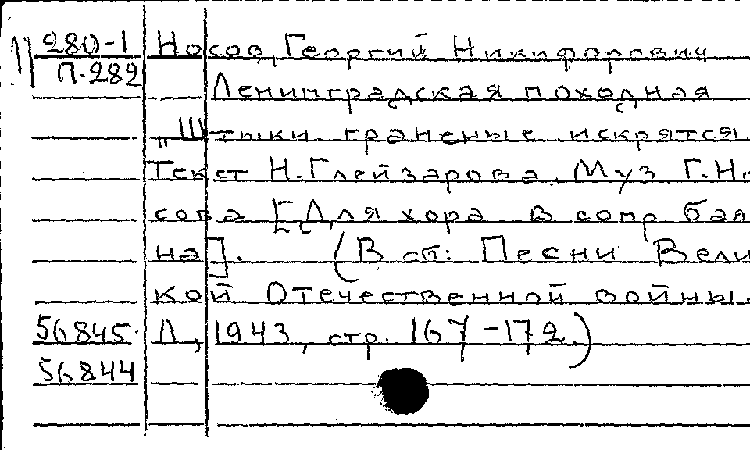 280-1 Носов, Георгий Никифорович
П.282 Ленинградская походная
„Штыки граненые искрятся
Текст Н. Глейзарова. Муз Г. Но
сова [Для хора в сопр бая
на]. (В сб: Песни Вели
кой Отечественной войны.
56845. Л, 1943, стр. 167-172.)
56844